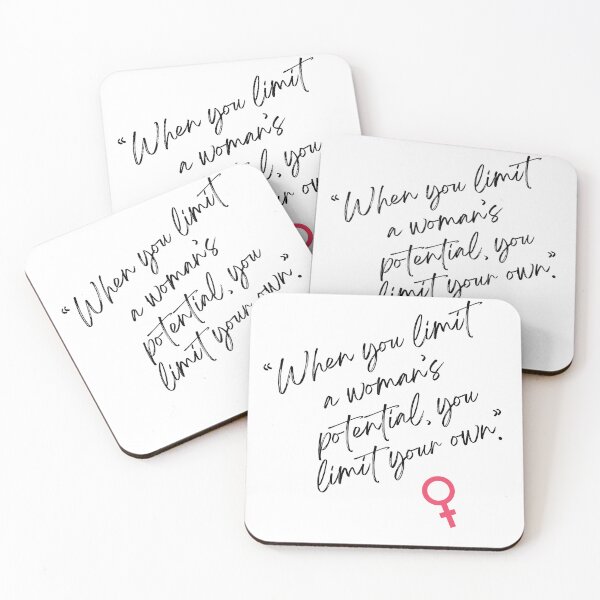 “When you limit
a woman's
you
“When you limit
a woman's
potential, you
limit your own.”
“When you limit
a woman's
potential, you
limit your own.”
“When you limit
a woman's
potential, you
limit your own.”